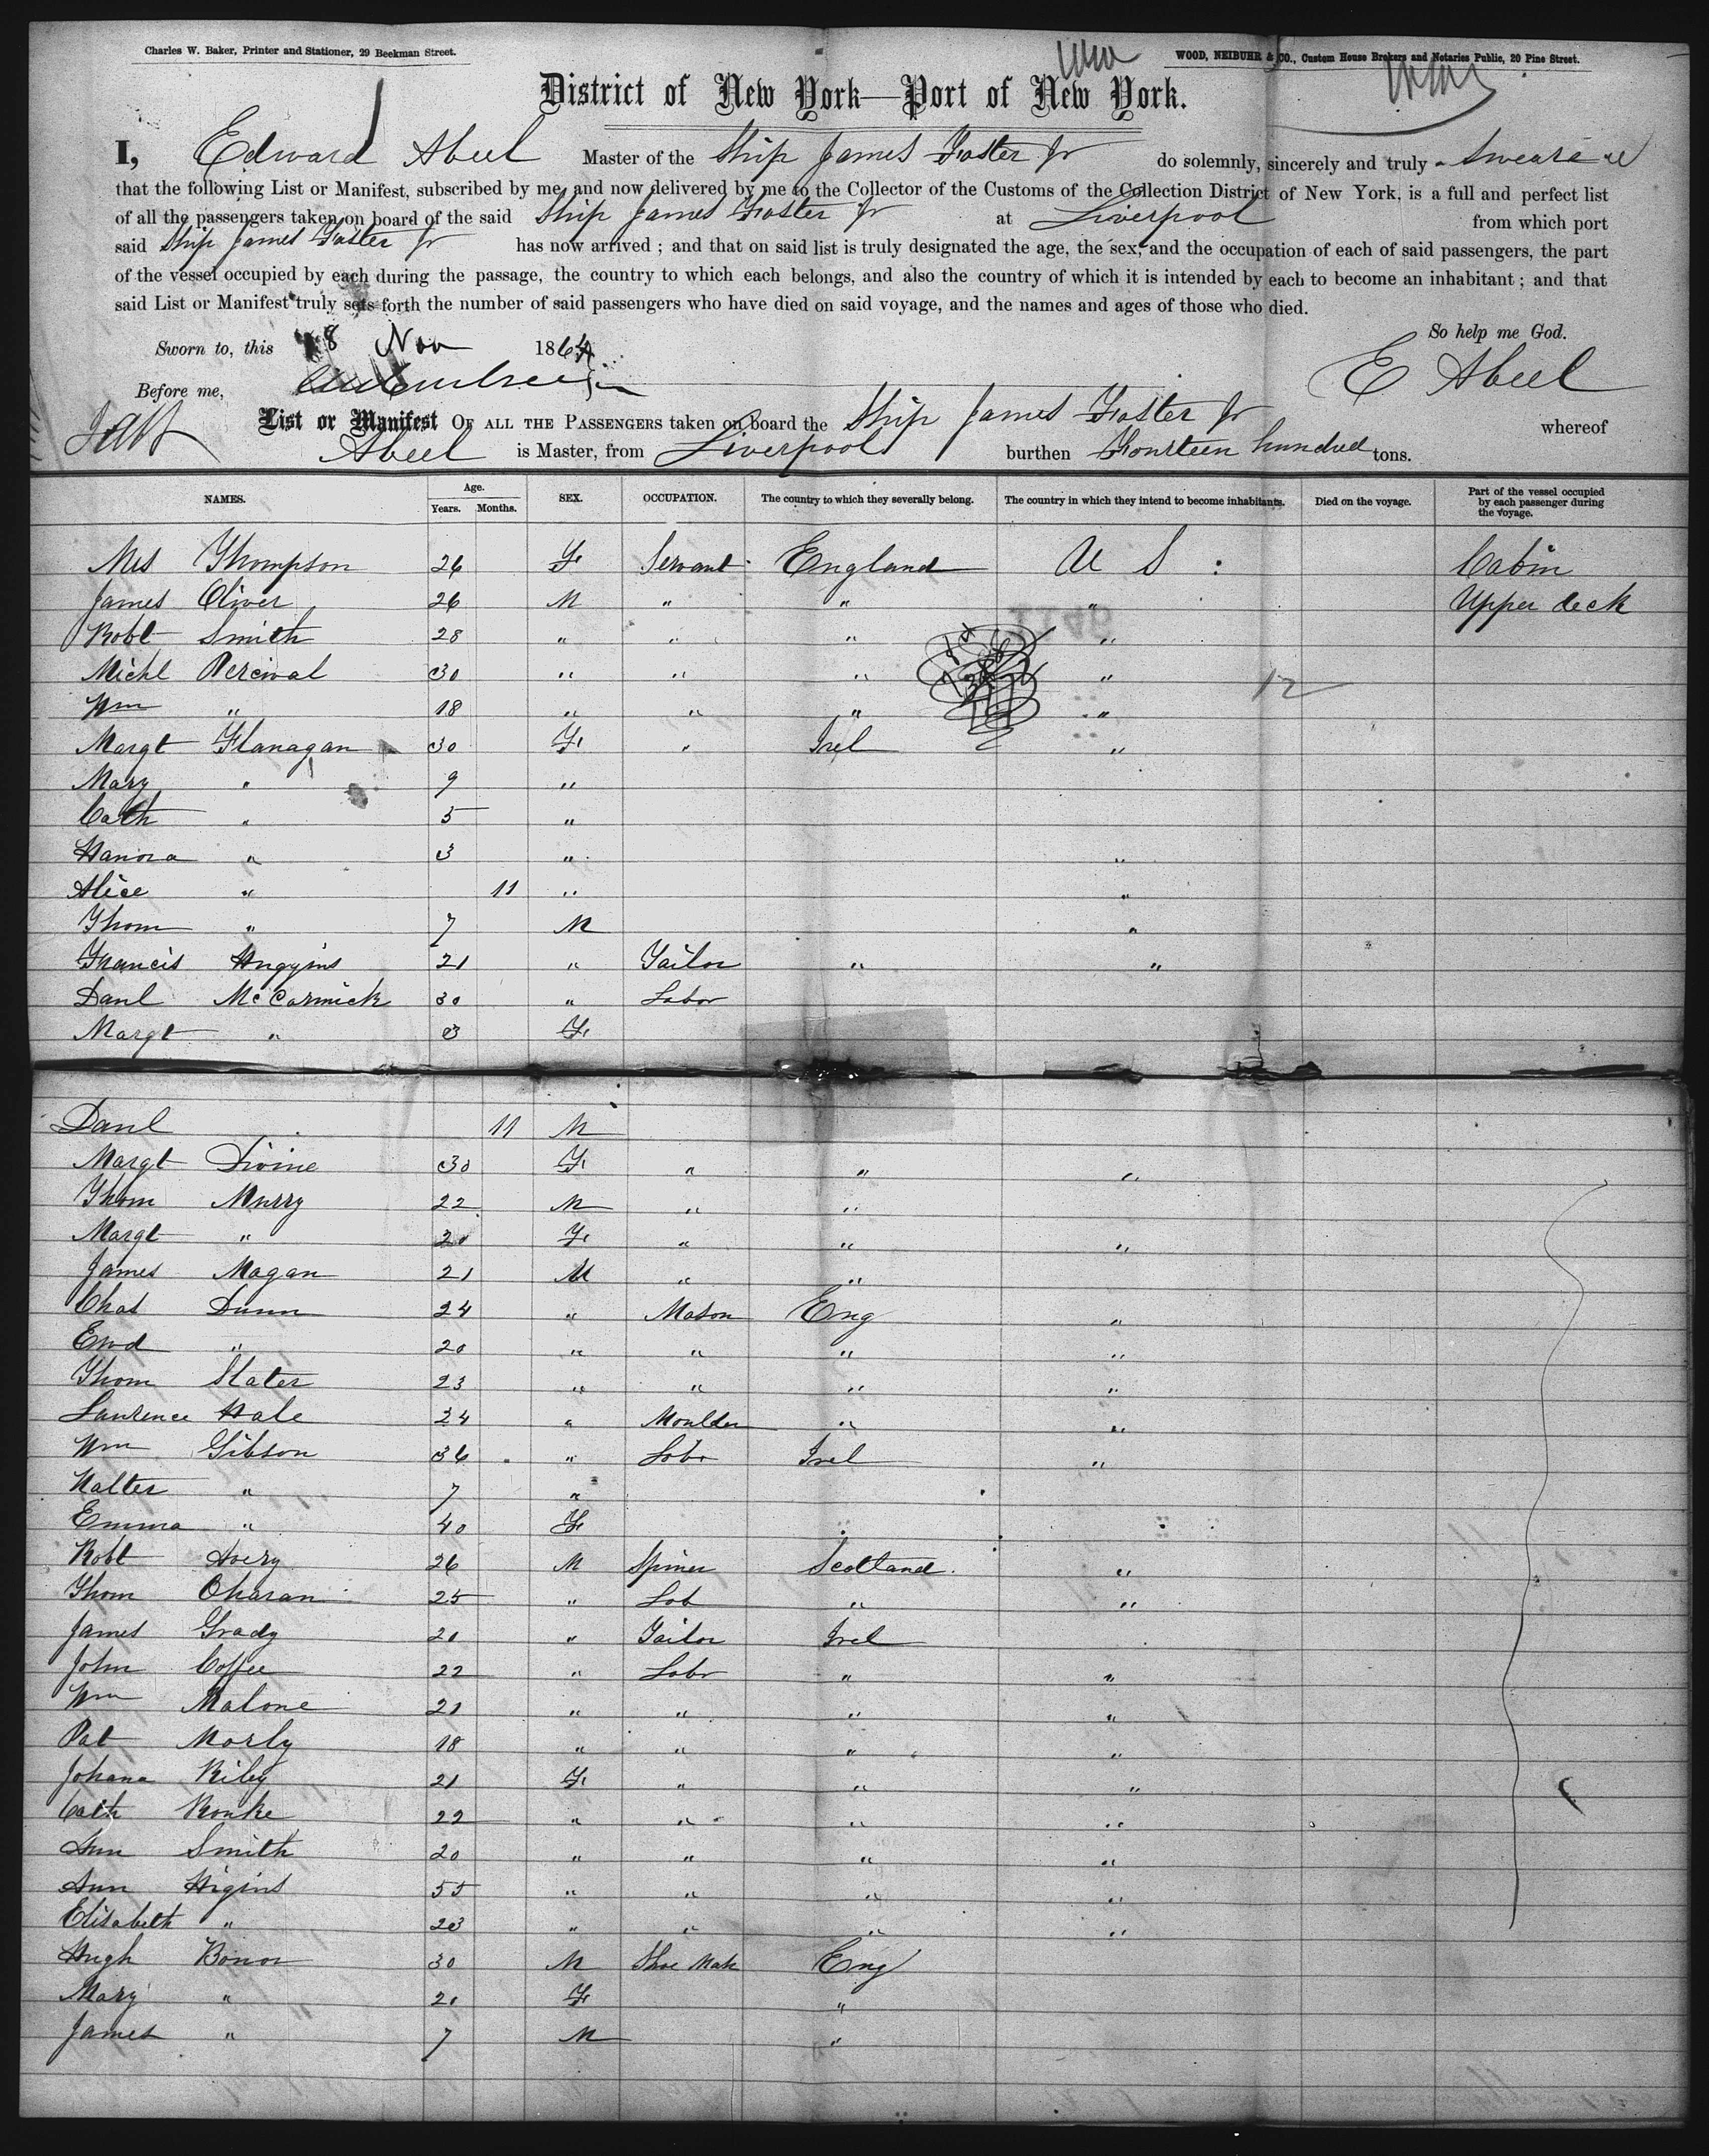 Charles W. Baker, Printer and Stationer, 29 Beekman Street.
WOOD, NEIBUHR & CO., Custom House Brokers and Notaries Public, 20 Pine Street.
District of New York—Port of New York.
I, Edward Abeel Master of the Ship James Foster Jr do solemnly, sincerely and truly swear
that the following List or Manifest, subscribed by me, and now delivered by me to the Collector of the Customs of the Collection District of New York, is a full and perfect list
of all the passengers taken on board of the said Ship James Foster Jr at Liverpool from which port
said Ship James Foster Jr has now arrived ; and that on said list is truly designated the age, the sex, and the occupation of each of said passengers, the part
of the vessel occupied by each during the passage, the country to which each belongs, and also the country of which it is intended by each to become an inhabitant ; and that
said List or Manifest truly sets forth the number of said passengers who have died on said voyage, and the names and ages of those who died.
So help me God.
Sworn to, this 8 Nov 1864
E Abeel
Before me,
List or Manifest OF ALL THE PASSENGERS taken on board the Ship James Foster Jr whereof
Abeel is Master, from Liverpool burthen Fourteen hundred tons.
NAMES. Age. Years. Months. SEX. OCCUPATION. The country to which they severally belong. The country in which they intend to become inhabitants. Died on the voyage. Part of the vessel occupied by each passenger during the voyage.
Mrs Thompson 26 F Servant England U S : Cabin
James Oliver 26 M " " " Upper deck
Robt Smith 28 " " " "
Michl Percival 30 " " " " 12
Wm " 18 " " " "
Margt Flanagan 30 F " Irel "
Mary " 9 "
Cath " 5 "
Hanora " 3 " "
Alice " 11 " "
Thom " 7 M "
Francis Huggins 21 " Tailor " "
Danl McCormick 30 " Labor
Margt " 3 F
Danl 11 M
Margt Divine 30 F " " "
Thom Murry 22 M " "
Margt " 20 F " " "
James Magan 21 M " "
Chas Dunn 24 " Mason Eng "
Ewd " 20 " " " "
Thom Slater 23 " " " "
Laurence Hale 24 " Moulder " "
Wm Gibson 36 " Labr Irel "
Walter " 7 "
Emma " 40 F
Robt Avery 26 M Spiner Scotland "
Thom Oharan 25 " Lab " "
James Grady 20 " Tailor Irel
John Coffee 22 " Labr " "
Wm Malone 21 " " " "
Pat Morly 18 " " " "
Johana Riley 21 F " " "
Cath Rouke 22 " " " "
Ann Smith 20 " " " "
Ann Higins 55 " " " "
Elisabeth " 23 " " " "
Hugh Bonor 30 M Shoe Mak Eng
Mary " 21 F "
James " 7 M "